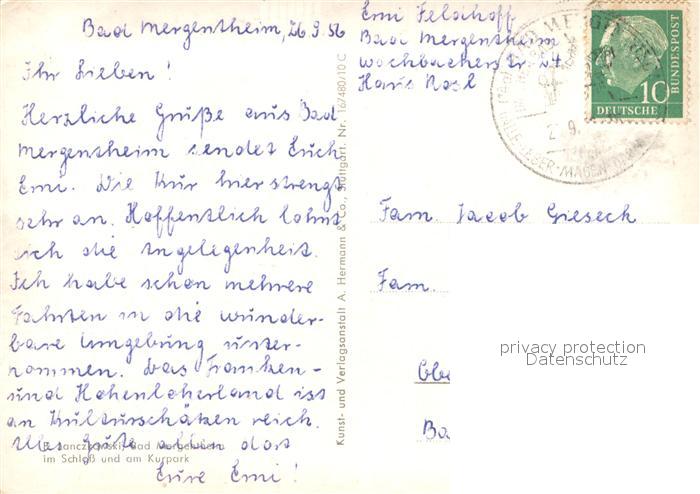 Bad Mergentheim, 26.9.56
Ihr Lieben!
Herzliche Grüße aus Bad
Mergentheim sendet Euch
Emi. Die Kur hier strengt
sehr an. Hoffentlich lohnt
sich die Angelegenheit.
Ich habe schon mehrere
Fahrten in die wunder-
bare Umgebung unter-
nommen. Das Franken-
und Hohenloherland ist
an Kulturschätzen reich.
Alles Gute allen dort
Eure Emi!
Bad Mergentheim
im Schloß und am Kurpark
Kunst- und Verlagsanstalt A. Hermann & Co., Stuttgart. Nr. 16/480/10 C
Emi Feldhoff
Bad Mergentheim
Wachbacherstr. 24
Haus Rosl
BAD MERGENTHEIM
LEBER-MAGEN-DARM
10
DEUTSCHE
BUNDESPOST
Fam. Jacob Gieseck
Fam.
privacy protection
Datenschutz
Obe
Ba